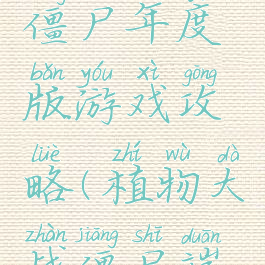 僵尸年度
bǎn yóu xì gōng
版游戏攻
lüè zhí wù dà
略(植物大
zhàn jiāng shī duān
战僵尸端